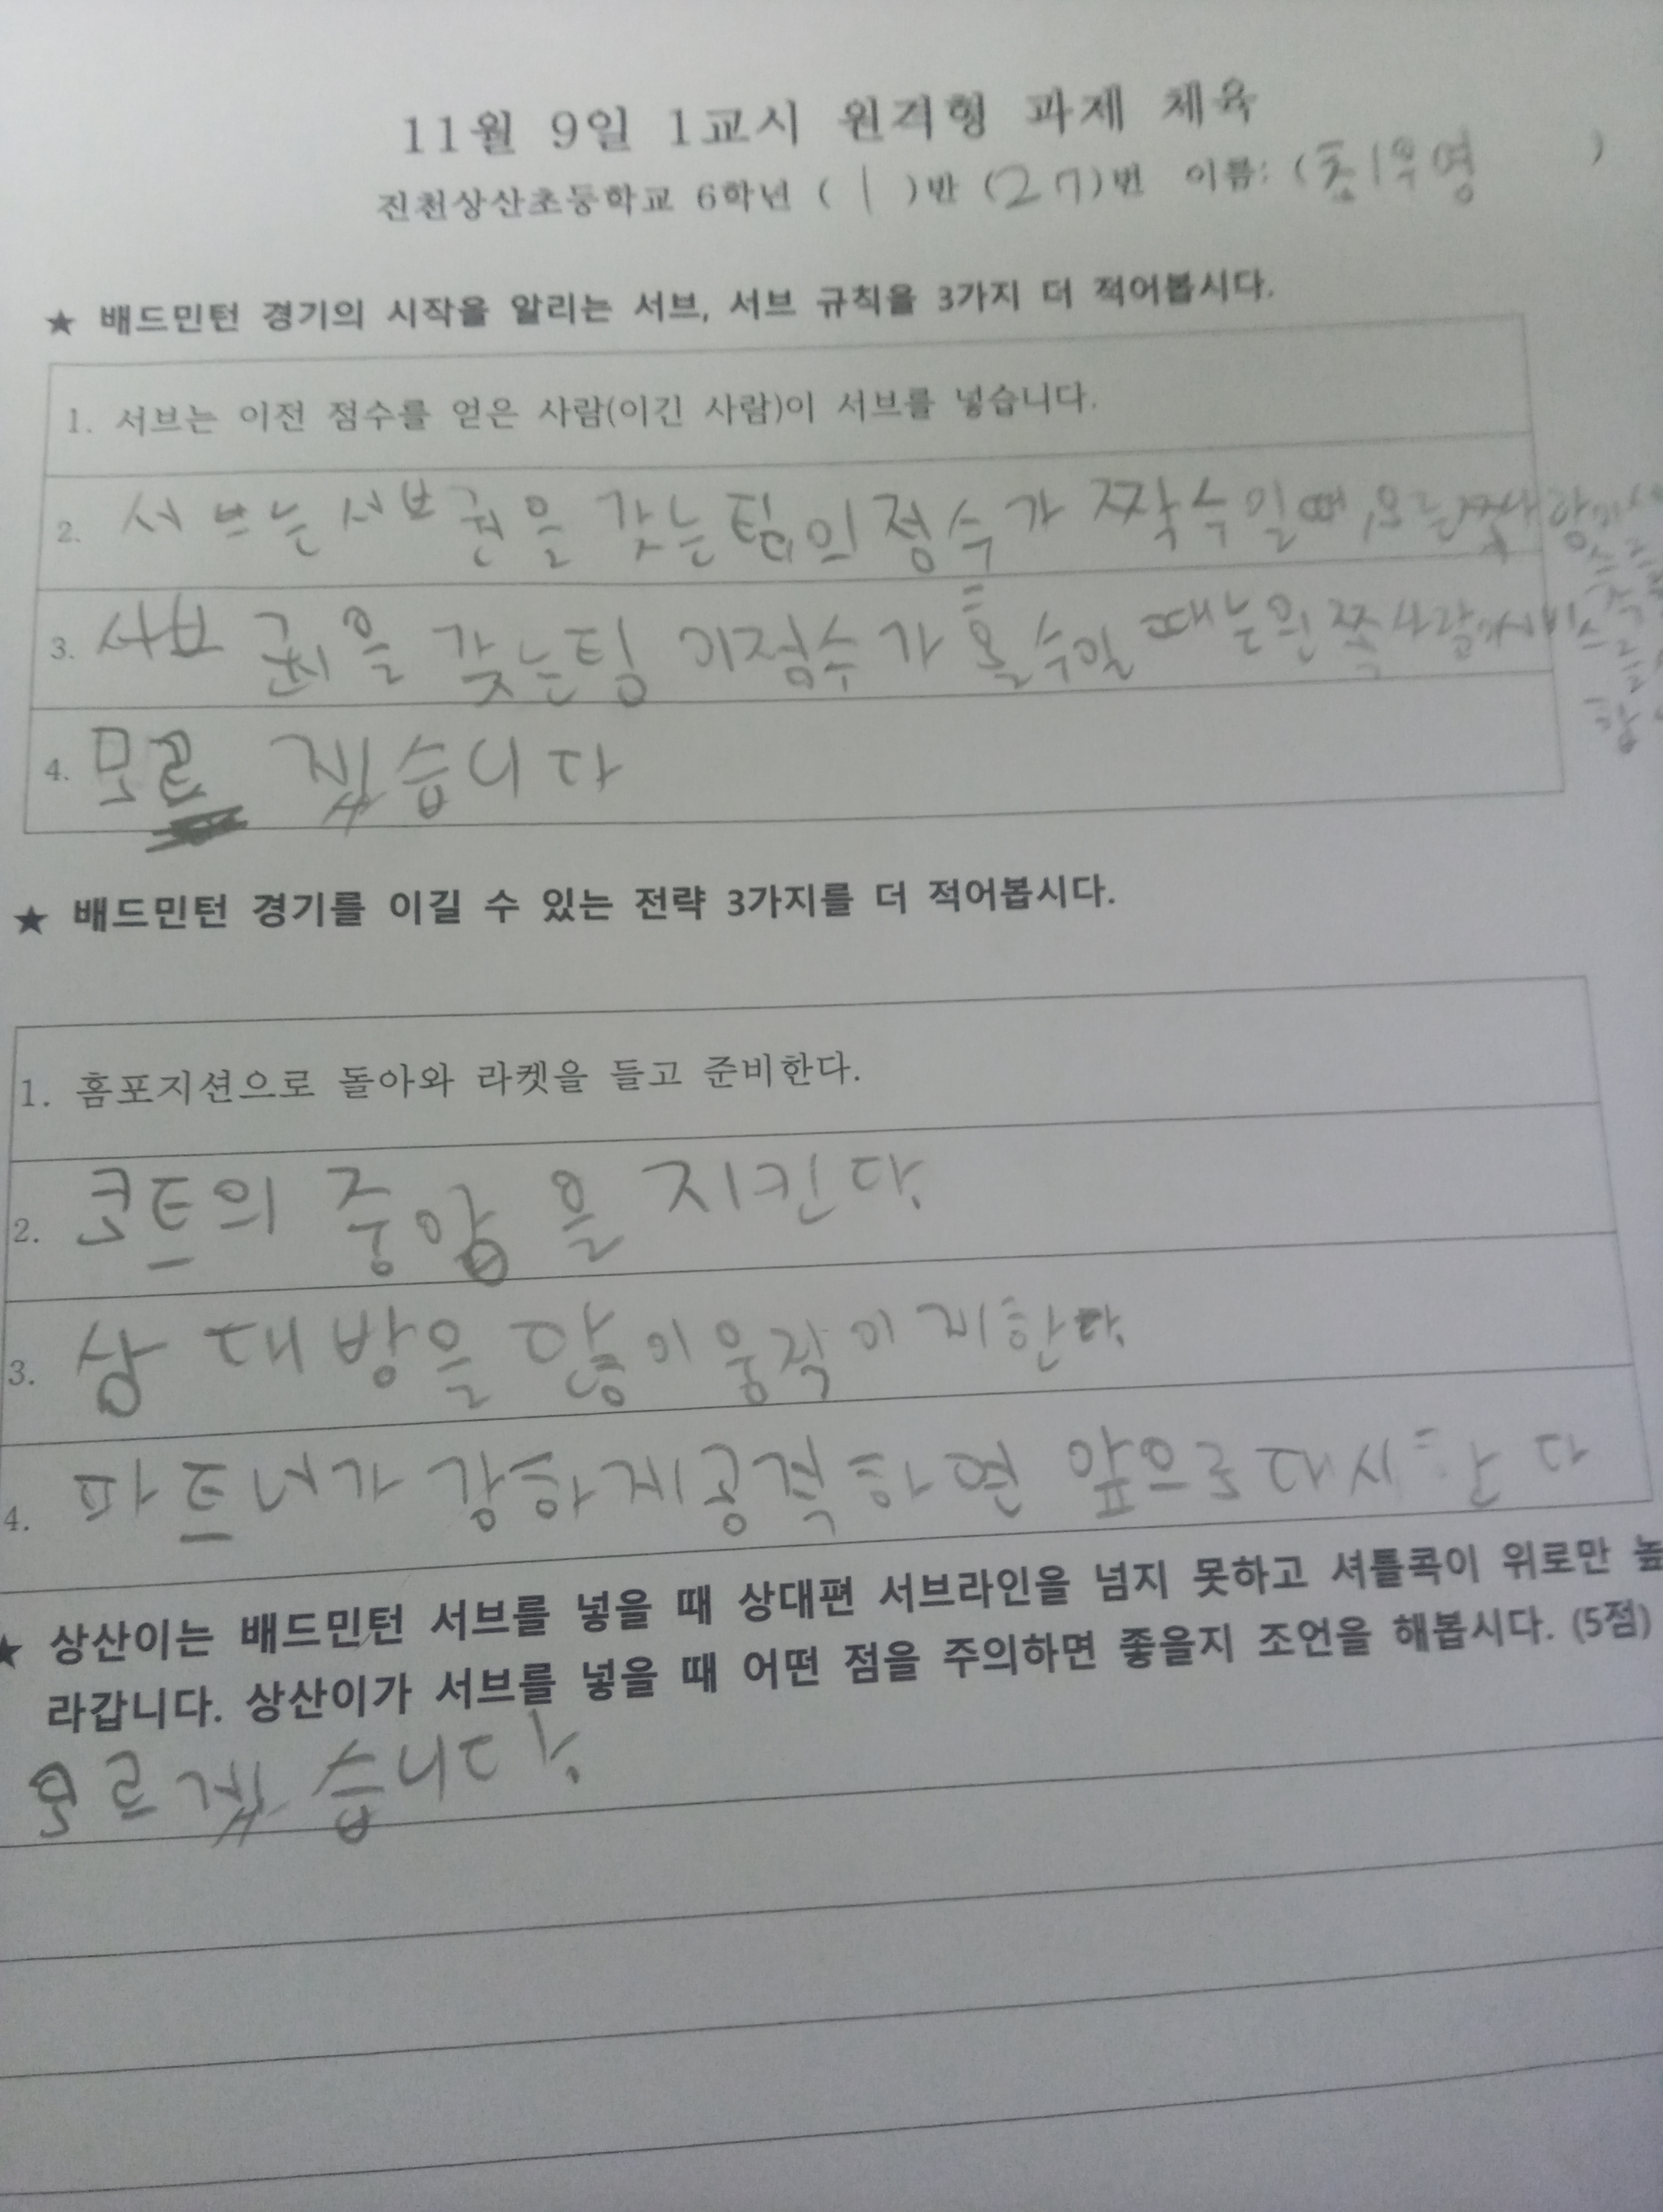 11월 9일 1교시 원격형 과제 체육
진천상산초등학교 6학년 ( 1 )반 (27)번 이름: (최우영 )
★ 배드민턴 경기의 시작을 알리는 서브, 서브 규칙을 3가지 더 적어봅시다.
1. 서브는 이전 점수를 얻은 사람(이긴 사람)이 서브를 넣습니다.
2. 서브는 서브권을 갖는팀의 점수가 짝수일때, 오른쪽사람이
3. 서브 권을 갖는팀 의점수가 홀수일 때는왼쪽사람이서비스를
4. 모르겠습니다
★ 배드민턴 경기를 이길 수 있는 전략 3가지를 더 적어봅시다.
1. 홈포지션으로 돌아와 라켓을 들고 준비한다.
2. 코트의 중앙을 지킨다.
3. 상대방을 많이움직이게한다.
4. 파트너가 강하게공격하면 앞으로대시한다
★ 상산이는 배드민턴 서브를 넣을 때 상대편 서브라인을 넘지 못하고 셔틀콕이 위로만 높
라갑니다. 상산이가 서브를 넣을 때 어떤 점을 주의하면 좋을지 조언을 해봅시다. (5점)
모르겠습니다.